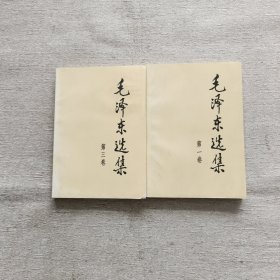 毛泽东选集
第三卷
毛泽东选集
第一卷